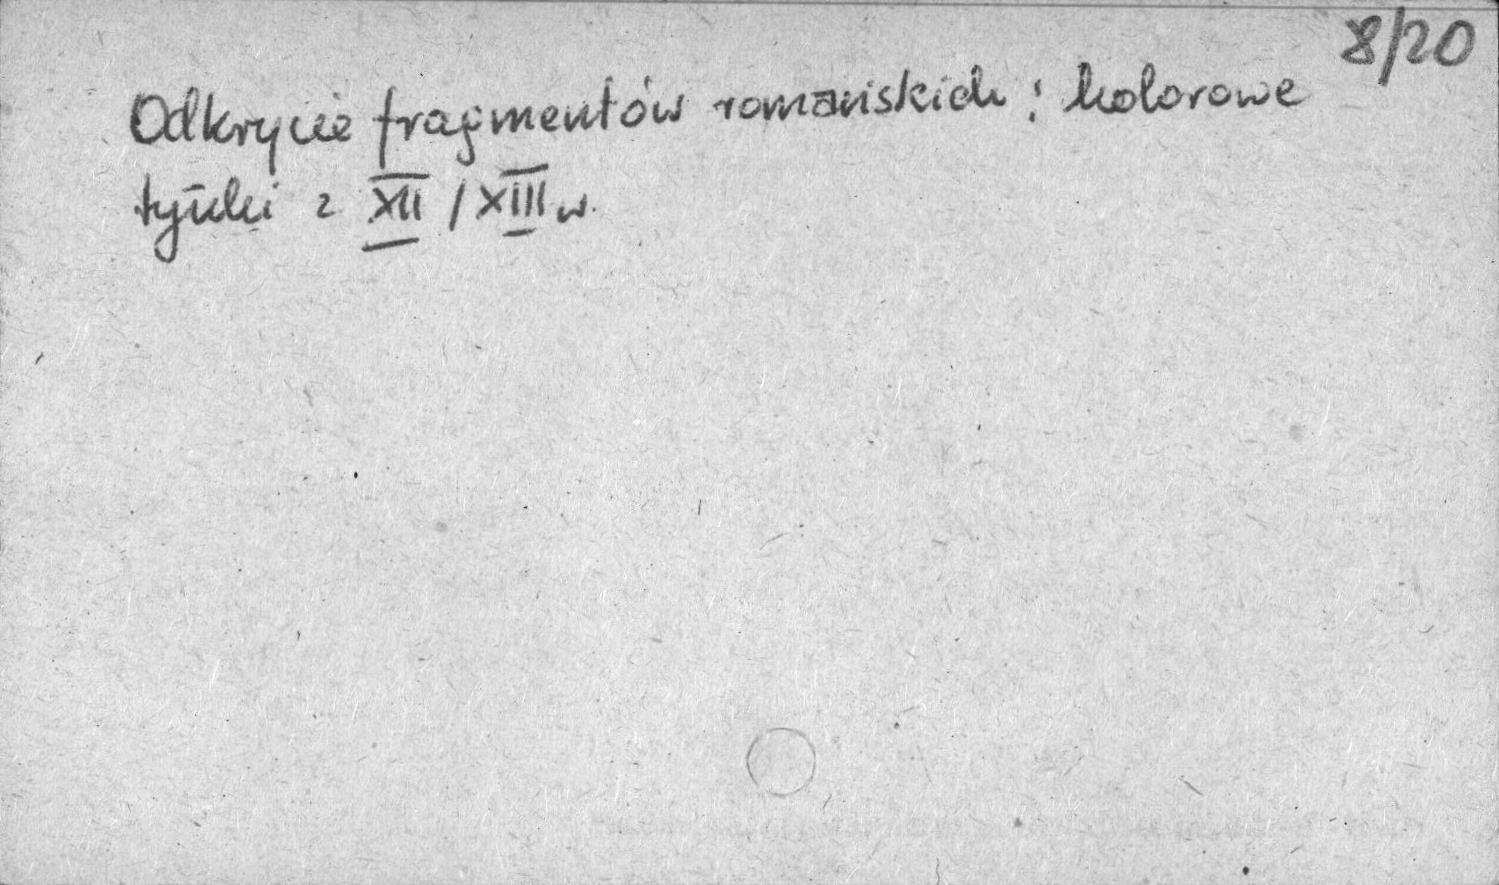 8/20
Odkrycie fragmentów romańskich; kolorowe
tynki z XII / XIII w.